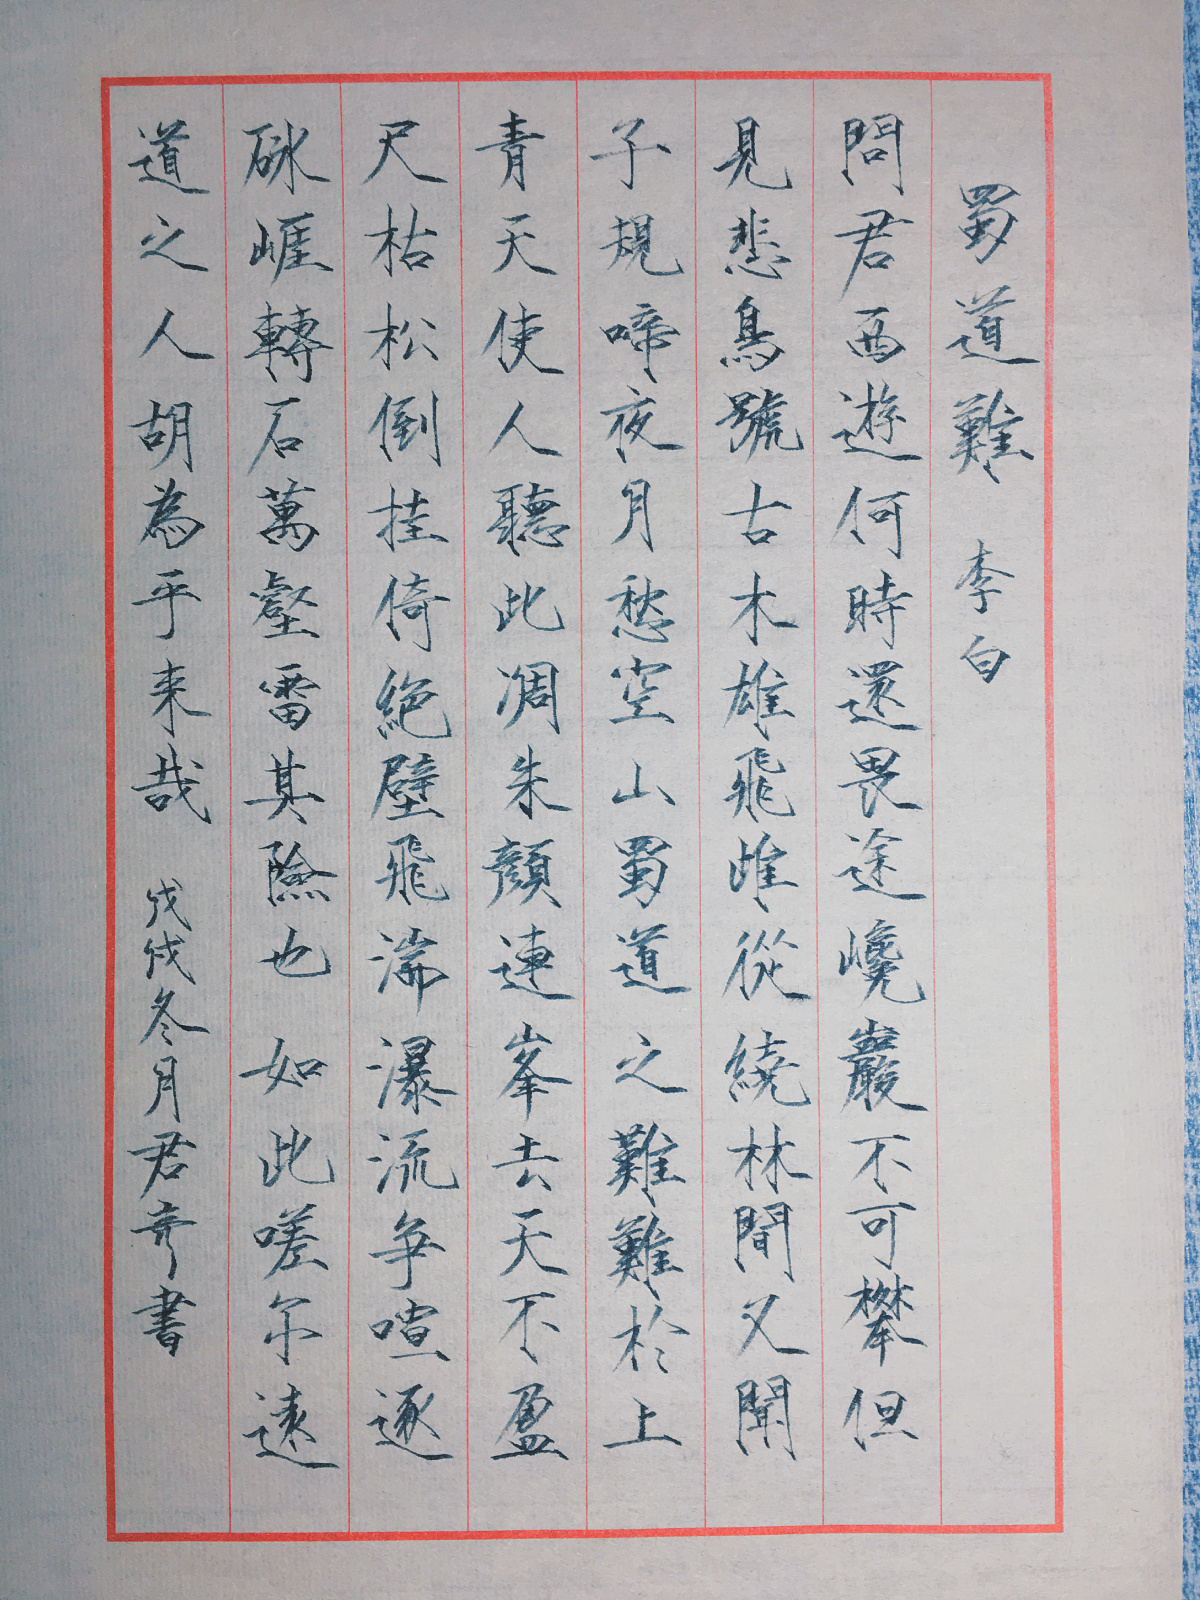 蜀道難 李白
問君西遊何時還畏途巉巖不可攀但
見悲鳥號古木雄飛雌從繞林間又聞
子規啼夜月愁空山蜀道之難難於上
青天使人聽此凋朱顏連峯去天不盈
尺枯松倒挂倚絕壁飛湍瀑流爭喧逐
砯崕轉石萬壑雷其險也如此嗟尔遠
道之人胡為乎来哉 戊戌冬月君奇書